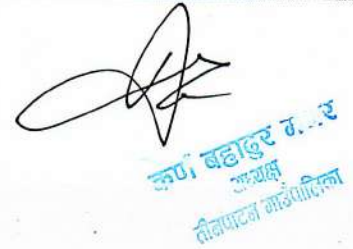 कर्ण बहादुर
अध्यक्ष
तीनपाटन गाउँपालिका